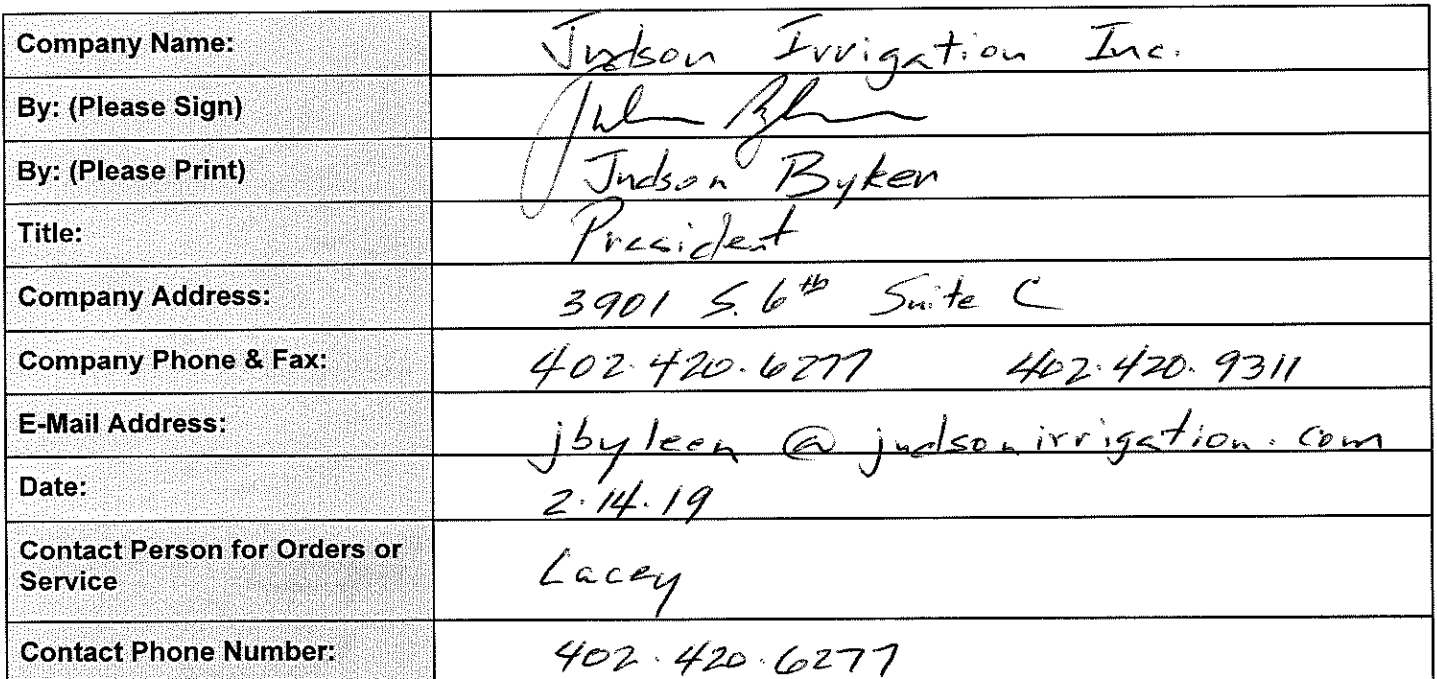 Company Name: Judson Irrigation Inc.
By: (Please Sign)
By: (Please Print) Judson
Title: President
Company Address: 3901 S. 6th Suite C
Company Phone & Fax: 402.420.6277 402.420.9311
E-Mail Address: jbyleen @ judsonirrigation.com
Date: 2.14.19
Contact Person for Orders or
Service Lacey
Contact Phone Number: 402.420.6277